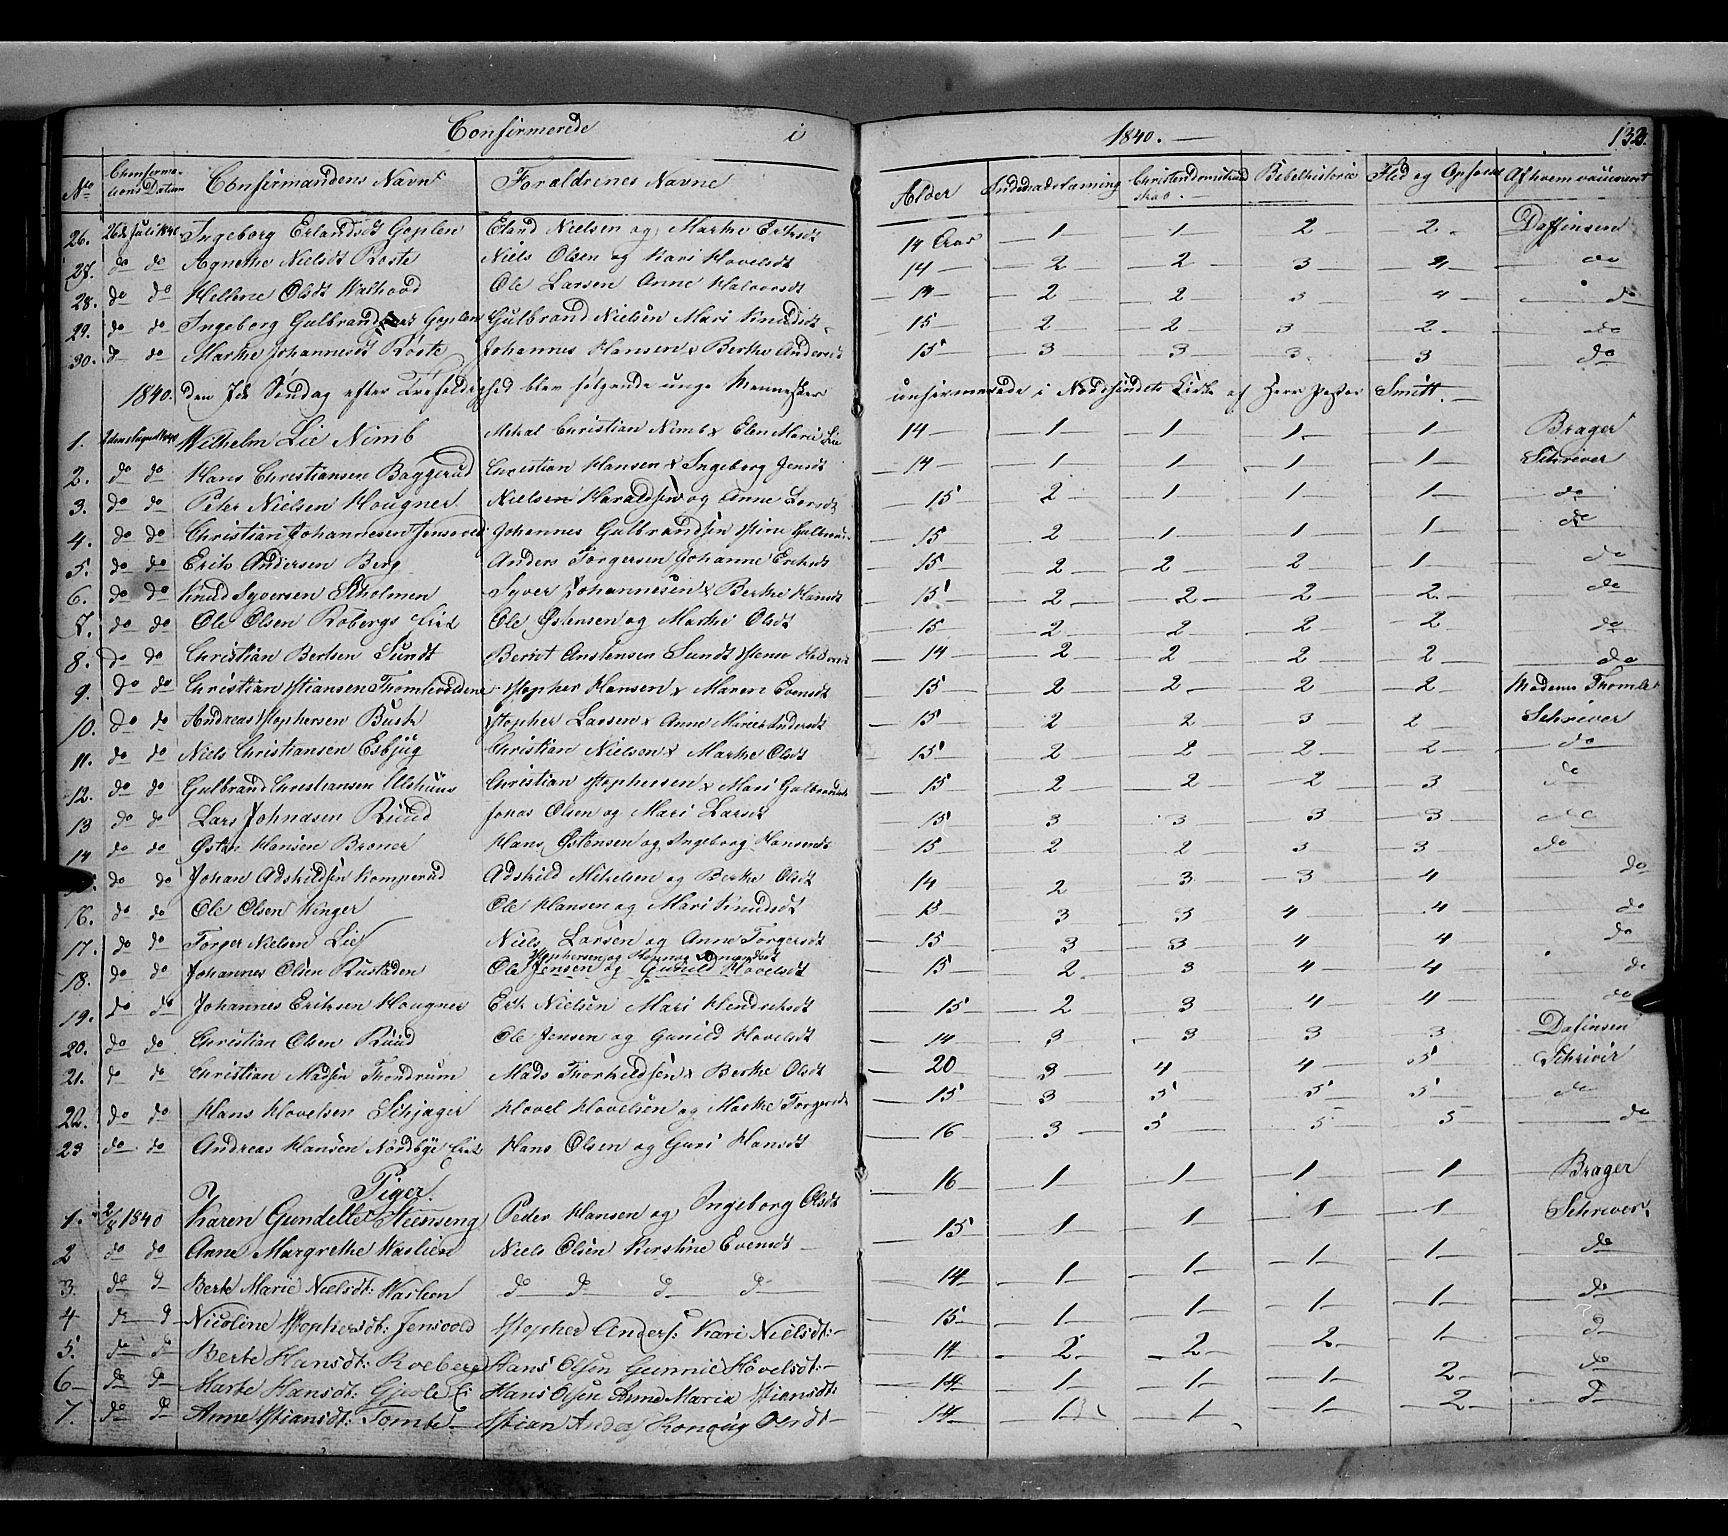 Confirmerede i 1840. 132.
No Confirmationsdatum Confirmandens Navn Forældrenes Navne Alder Indenadslæsning Christendomskundskab Bibelhistorie Flid og Opførsel Af hvem vaccineret
26. 26de Juli 1840 Ingeborg Erlandsdt Goplen Eland Nielsen og Marthe Eriksdt 14 Aar 1 1 2 2
27. do do Agnethe Nielsdt Roste Niels Olsen og Kari Hovelsdt 14 2 2 3 4 do
28. do do Hellene Olsdt Walhovd Ole Larsen Anne Halvorsdt 14 2 2 3 4 do
29. do do Ingeborg Gulbrandsdt Goplen Gulbrand Nielsen Mari Knudsdt 15 2 2 3 2 do
30. do do Marthe Johannesdt Roste Johannes Hansen & Berthe Andersdt 15 3 3 3 3 do
1840. den 7de Søndag efter Trefoldighed blev følgende unge Mennesker confirmerede i Nordsindets Kirke af Herr Pastor Smitt.
1. 2den August 1840 Wilhelm Lie Nimb Mikal Christian Nimb & Elen Marie Lie 14 1 1 1 1 Brager
2. do do Hans Christiansen Baggerud Christian Hansen & Ingeborg Jensdt 14 1 1 1 1 Schriver
3. do do Peter Nielsen Hougner Nielsen Haraldsen og Anne Larsdt 15 2 1 1 1 do
4. do do Christian Johannesen Jensvold Johannes Gulbrandsen Stine 15 2 1 1 1 do
5. do do Erik Andersen Berg Anders Torgersen Johanne Eriksdt 15 2 2 2 1 do
6. do do Knud Syversen Stholmen Syver Johannesen & Berthe Hansdt 15 2 2 2 2 do
7. do do Ole Olsen Robergs Eie Ole Østensen og Marthe Olsdt 15 2 2 2 2 do
8. do do Christian Bertsen Sundt Bernt Anstensen Sundt 14 2 2 2 2 do
9. do do Christian Stiansen Stopher Hansen & Maren Evensdt 15 2 2 2 2 Madame Thomle
10. do do Andreas Stophersen Busk Stopher Larsen & Anne Marie Andersdt 15 2 2 3 2 Schriver
11. do do Niels Christiansen Esbjug Christian Nielsen & Marthe Olsdt 15 2 2 2 2 do
12. do do Gulbrand Christiansen Christian Stophersen & Mari Gulbrandsdt 15 2 2 2 3 do
13 do do Lars Johnasen Ruud Jonas Olsen og Mari Larsdt 15 3 3 3 3 do
14 do do Østen Hansen Broner Hans Østensen og Ingeborg Hansendt 15 2 2 3 3 do
do do Johan Adskildsen Komperud Adskild Mikelsen og Berthe Olsdt 14 2 3 3 4 do
16. do do Ole Olsen Winger Ole Hansen og Mari Knudsdt 15 3 3 4 4 do
17. do do Torger Nielsen Lie Niels Larsen og Anne Torgersdt 15 3 3 4 4 do
18. do do Johannes Olsen Rustaden Ole Jensen og Gunild Hovelsdt 15 2 3 4 4 do
19. do do Johannes Eriksen Hougner Erik Nielsen Mari Hendreksdt 15 2 3 4 4 do
20. do do Christian Olsen Ruud Ole Jensen og Gunild Hovelsdt 14 3 3 3 3 Dafinsen
21. do do Christian Madsen Thondrum Mads Thorkildsen & Berthe Olsdt 20 3 4 4 5 Schriver
22. do do Hans Hovelsen Schjager Hovel Hovelsen og Marthe Torgersdt 15 3 5 5 5 do
23 do do Andreas Hansen Nordbye Eie Hans Olsen og Guri Hansdt 16 3 5 5 5 do
Piger.
1. 2/8 1840 Karen Gundelle Steenseng Peder Hansen og Ingeborg Olsdt 16 1 1 1 1 Brager
2 do do Anne Margrethe Waslien Niels Olsen Kirstine Evensdt 15 1 1 1 1 Schriver
3. do d Berte Marie Nielsdt: Waslien d d d d 14 1 1 1 1 do
4 d d Nicoline Stophersdt: Jensvold Stopher Anders: Kari Nielsdt: 15 1 1 1 1 do
5. do d Berte Hansdt: Roeberg Hans Olsen Gunnil Hovelsdt: 14 2 2 2 1 d
6 do d Marte Hansdt: Gjesle Ei Hans Olsen Anne Maria Stiansdt: 14 1 1 1 2 do
7. do d Anne Stiansdt: Tomte Stian Anders Ronoug Olsdt 14 1 1 1 2 d